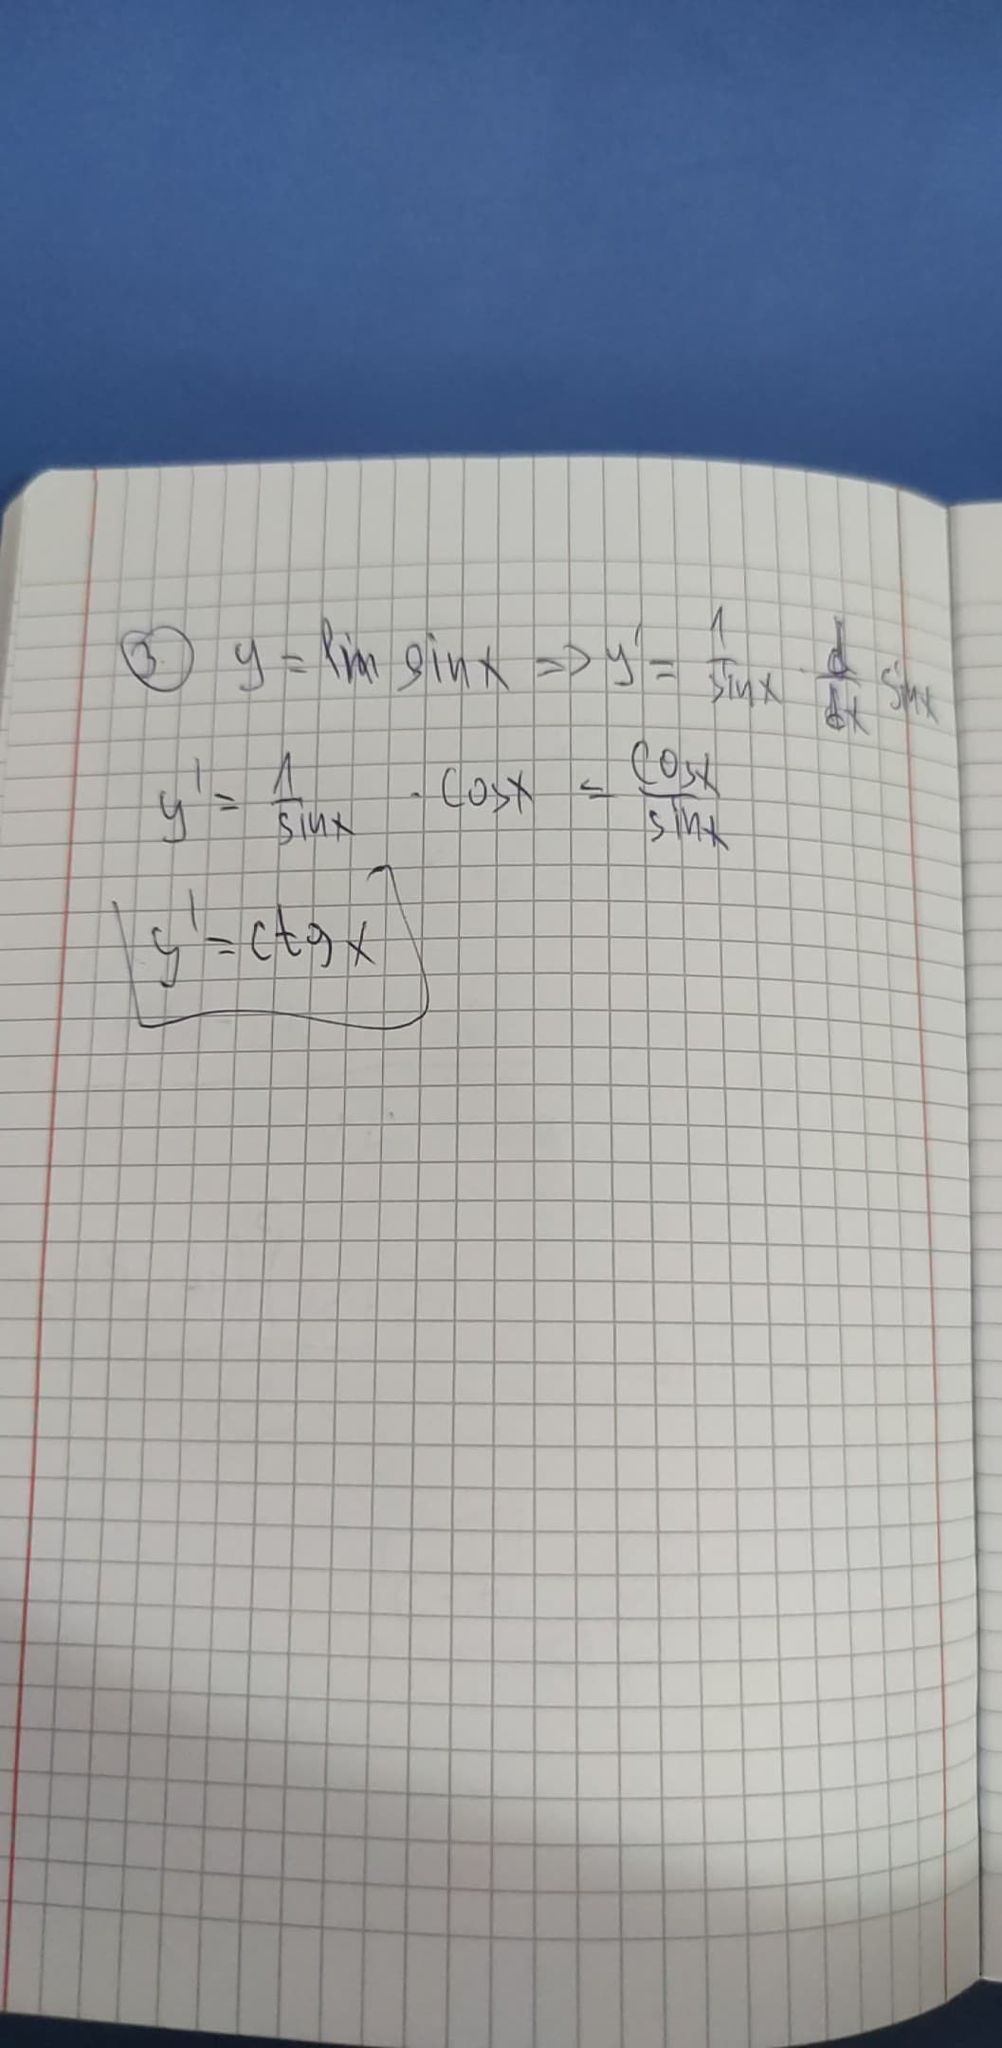 3. y = lim sinx => y' = 1/sinx · d/dx sinx
y' = 1/sinx · cosx = cosx/sinx
y' = ctgx